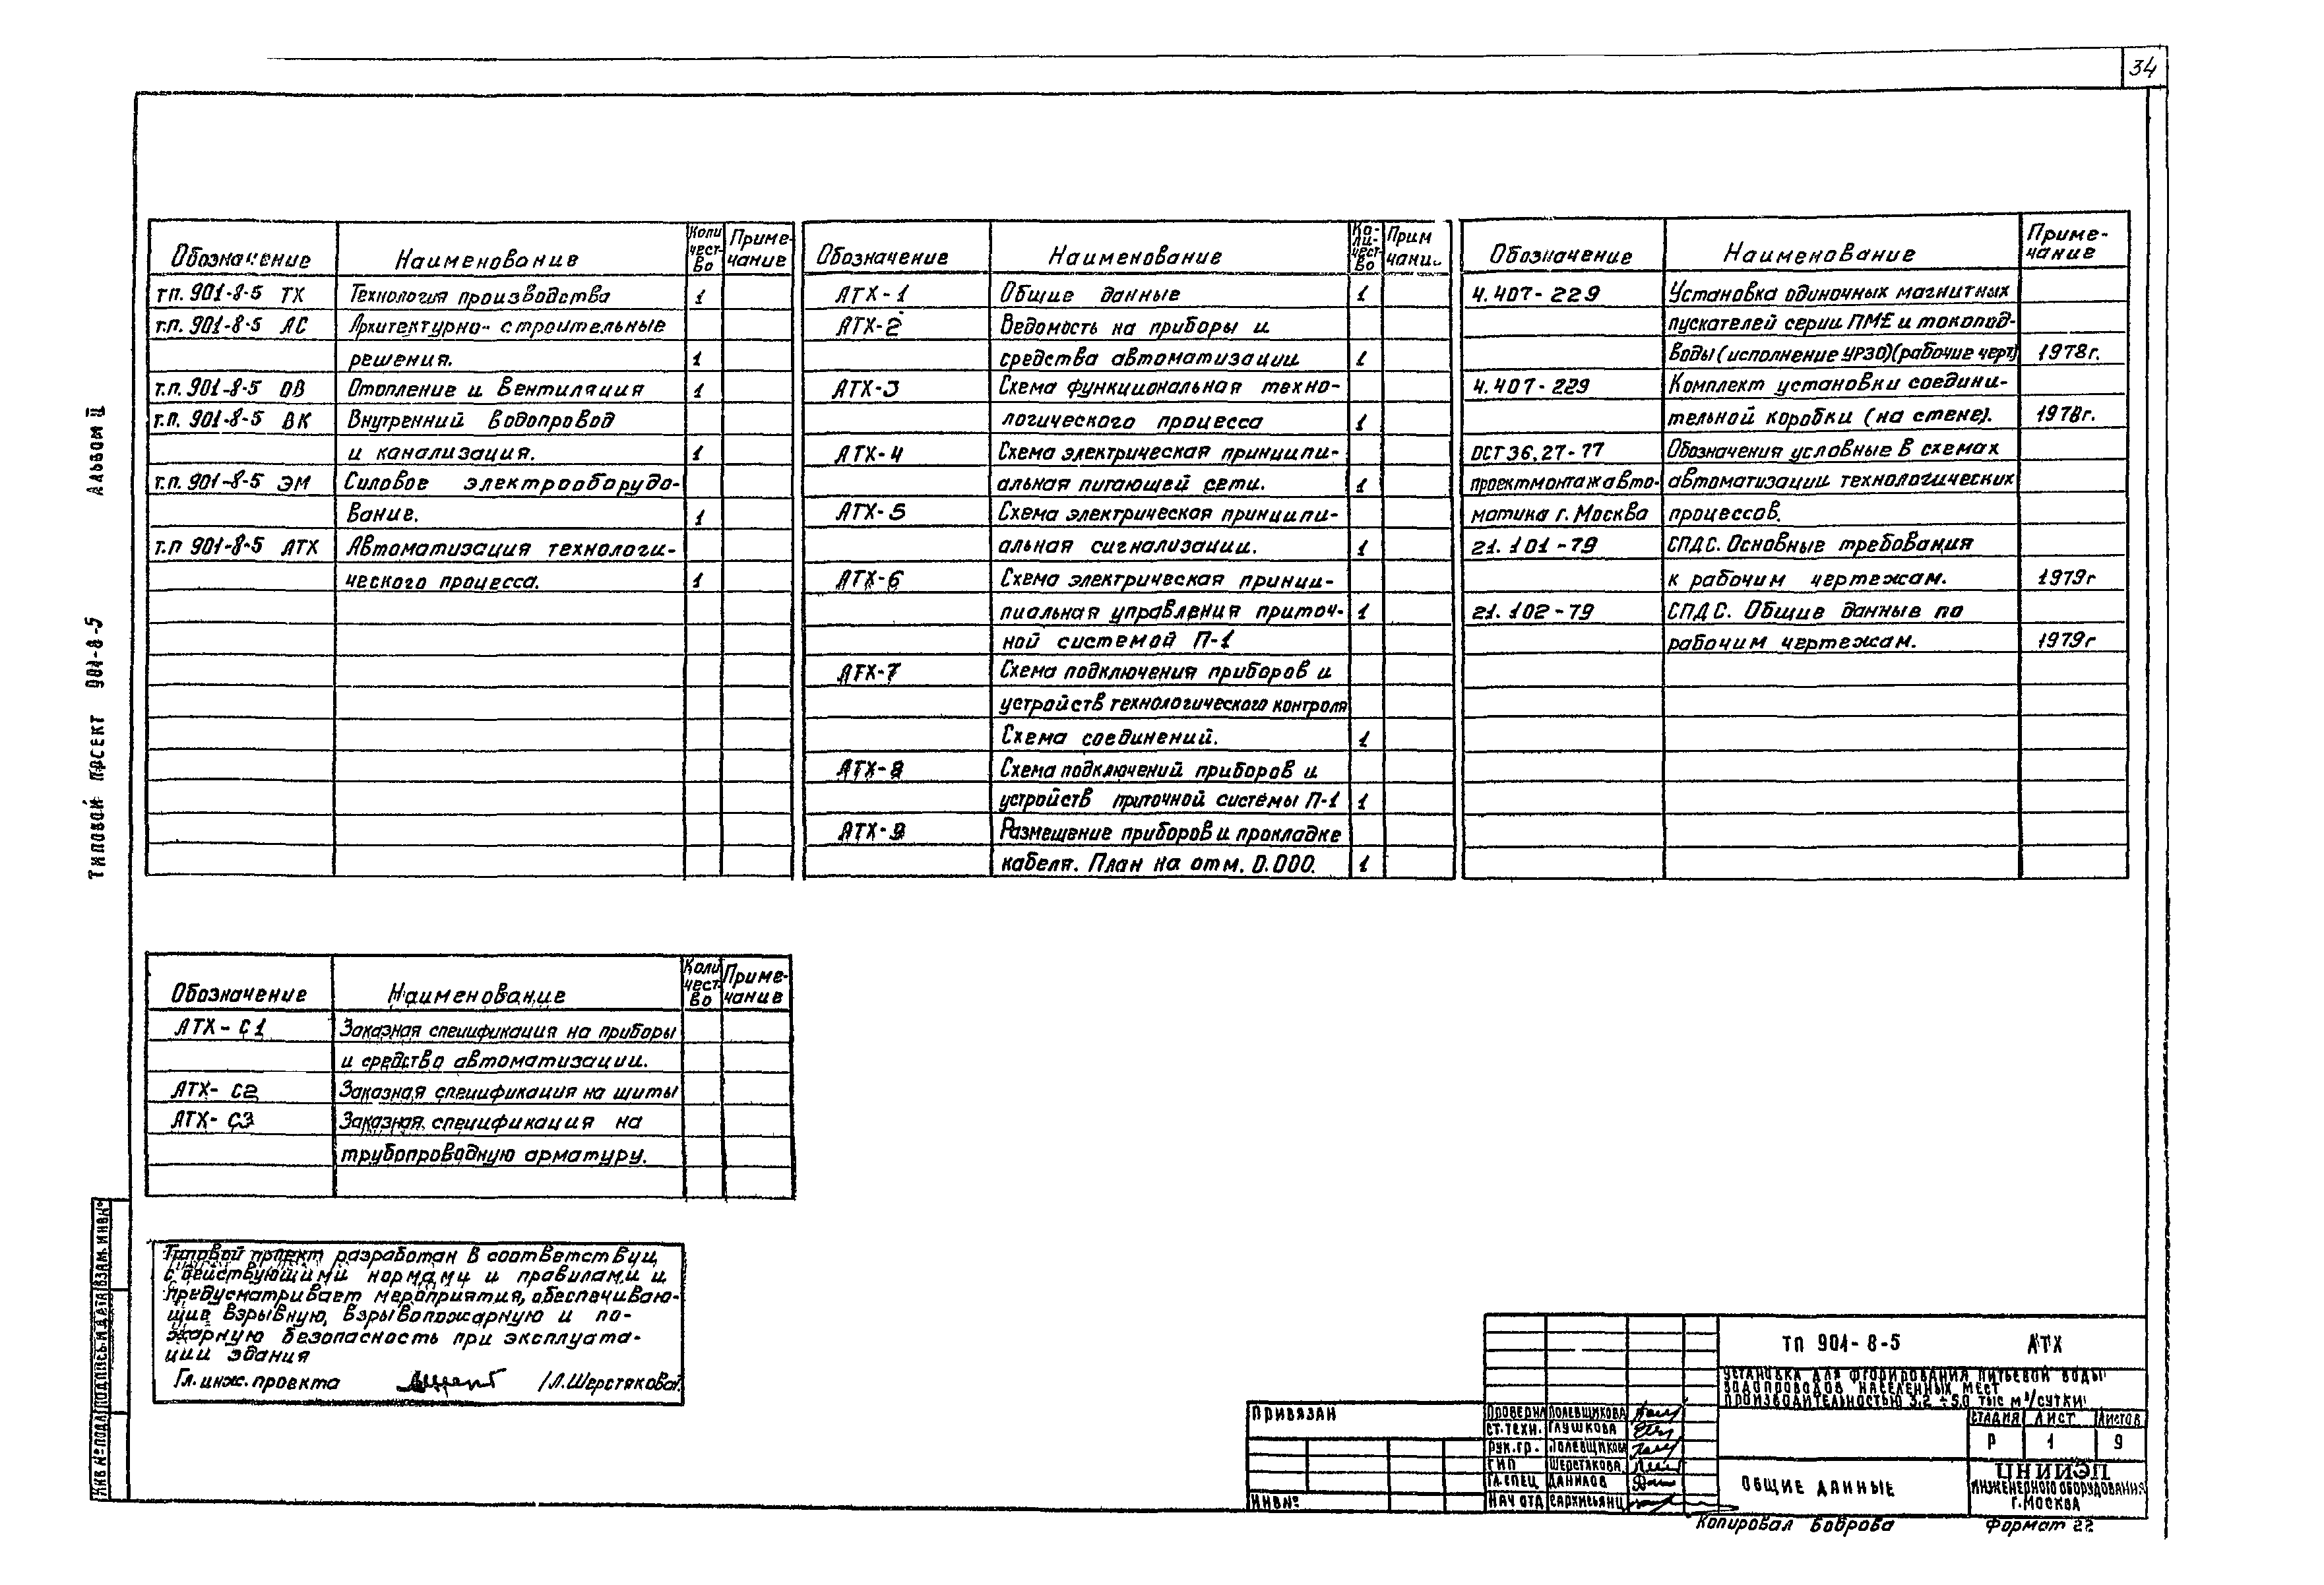 34
Альбом II
Типовой проект 901-8-5
Обозначение Наименование Коли чест- во Приме- чание
т.п. 901-8-5 ТХ Технология производства 1
т.п. 901-8-5 АС Архитектурно- строительные
решения. 1
т.п. 901-8-5 ОВ Отопление и вентиляция 1
т.п. 901-8-5 ВК Внутренний водопровод
и канализация. 1
т.п. 901-8-5 ЭМ Силовое электрооборудо-
вание. 1
т.п 901-8-5 АТХ Автоматизация технологи-
ческого процесса. 1
Обозначение Наименование Ко- ли- чест- во Прим чани..
АТХ-1 Общие данные 1
АТХ-2 Ведомость на приборы и
средства автоматизации 1
АТХ-3 Схема функциональная техно-
логического процесса 1
АТХ-4 Схема электрическая принципи-
альная питающей сети. 1
АТХ-5 Схема электрическая принципи-
альная сигнализации. 1
АТХ-6 Схема электрическая принци-
пиальная управления приточ- 1
ной системой П-1
АТХ-7 Схема подключения приборов и
устройств технологического контроля
Схема соединений. 1
АТХ-8 Схема подключений приборов и
устройств приточной системы П-1 1
АТХ-9 Размещение приборов и прокладке
кабеля. План на отм. 0.000. 1
Обозначение Наименование Приме- чание
4.407-229 Установка одиночных магнитных
пускателей серии ПМЕ и токопод-
воды (исполнение УР30)(рабочие черт) 1978г.
4.407-229 Комплект установки соедини-
тельной коробки (на стене). 1978г.
ОСТ 36.27-77 Обозначения условные в схемах
проектмонтажавто- автоматизации технологических
матика г. Москва процессов.
21.101-79 СПДС. Основные требования
к рабочим чертежам. 1979г
21.102-79 СПДС. Общие данные по
рабочим чертежам. 1979г
Обозначение Наименование Коли чест- во Приме- чание
АТХ-С1 Заказная спецификация на приборы
и средство автоматизации.
АТХ-С2 Заказная спецификация на щиты
АТХ-С3 Заказная спецификация на
трубопроводную арматуру.
Типовой проект разработан в соответствии
с действующими нормами и правилами и
предусматривает мероприятия, обеспечиваю-
щие взрывную, взрывопожарную и по-
жарную безопасность при эксплуата-
ции здания
Гл. инж. проекта /Л.Шерстякова/.
ИНВ № ПОДЛ ПОДПИСЬ И ДАТА ВЗАМ. ИНВ №
ПРИВЯЗАН
ИНВ №
ТП 901-8-5 АТХ
УСТАНОВКА ДЛЯ ФТОРИРОВАНИЯ ПИТЬЕВОЙ ВОДЫ
ВОДОПРОВОДОВ НАСЕЛЕННЫХ МЕСТ
ПРОИЗВОДИТЕЛЬНОСТЬЮ 3,2 ÷ 50 ТЫС М³/СУТКИ
ПРОВЕРИЛ ПОЛЕВЩИКОВА
СТ.ТЕХН. ГЛУШКОВА
РУК.ГР. ПОЛЕВЩИКОВА
ГИП ШЕРСТЯКОВА
ГЛ.СПЕЦ ДАНИЛОВ
НАЧ ОТД САРКИСЬЯНЦ
СТАДИЯ ЛИСТ ЛИСТОВ
Р 1 9
ОБЩИЕ ДАННЫЕ
ЦНИИЭП
ИНЖЕНЕРНОГО ОБОРУДОВАНИЯ
Г. МОСКВА
Копировал Боброва Формат 22